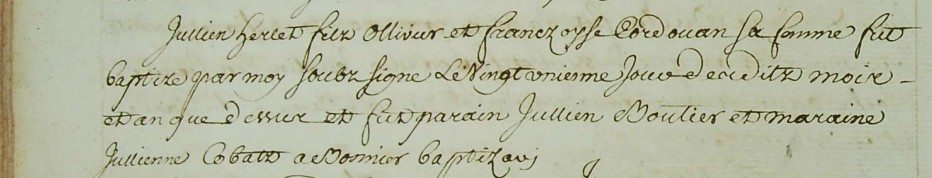 Jullien Herlet filz Ollivier et Franczoysse Cordouan sa famme fut
baptize par moy soubz signe Le Vingt unieme Jour desditz mois
et an que dessur et fut parain Jullien Moulier et maraine
Jullienne baptizavj